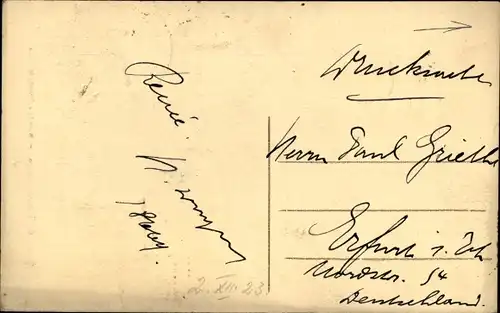 Drucksache
Herrn Paul Griethe
Erfurt i. Th
Nordstr. 54
Deutschland.
Renée
2. XII. 23